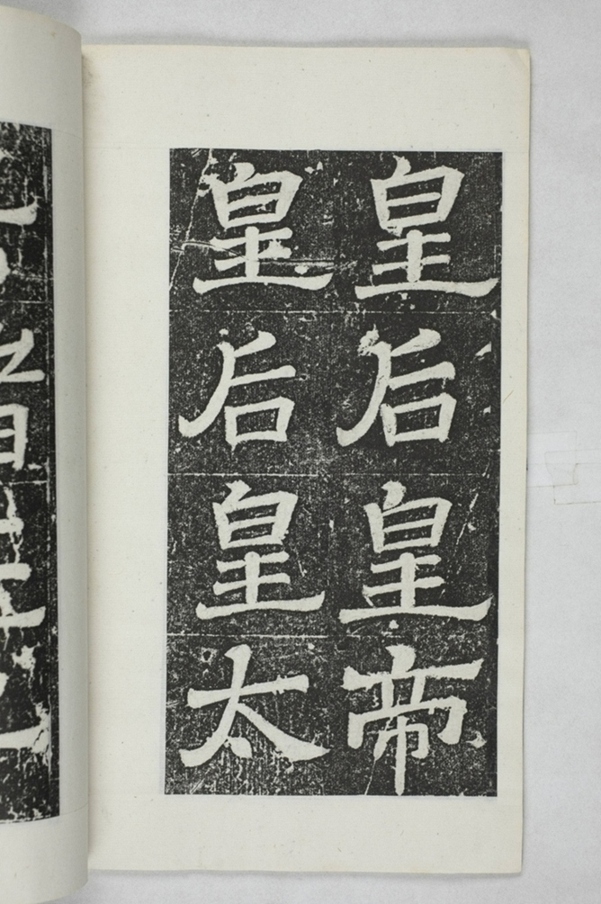 皇后皇帝
皇后皇太